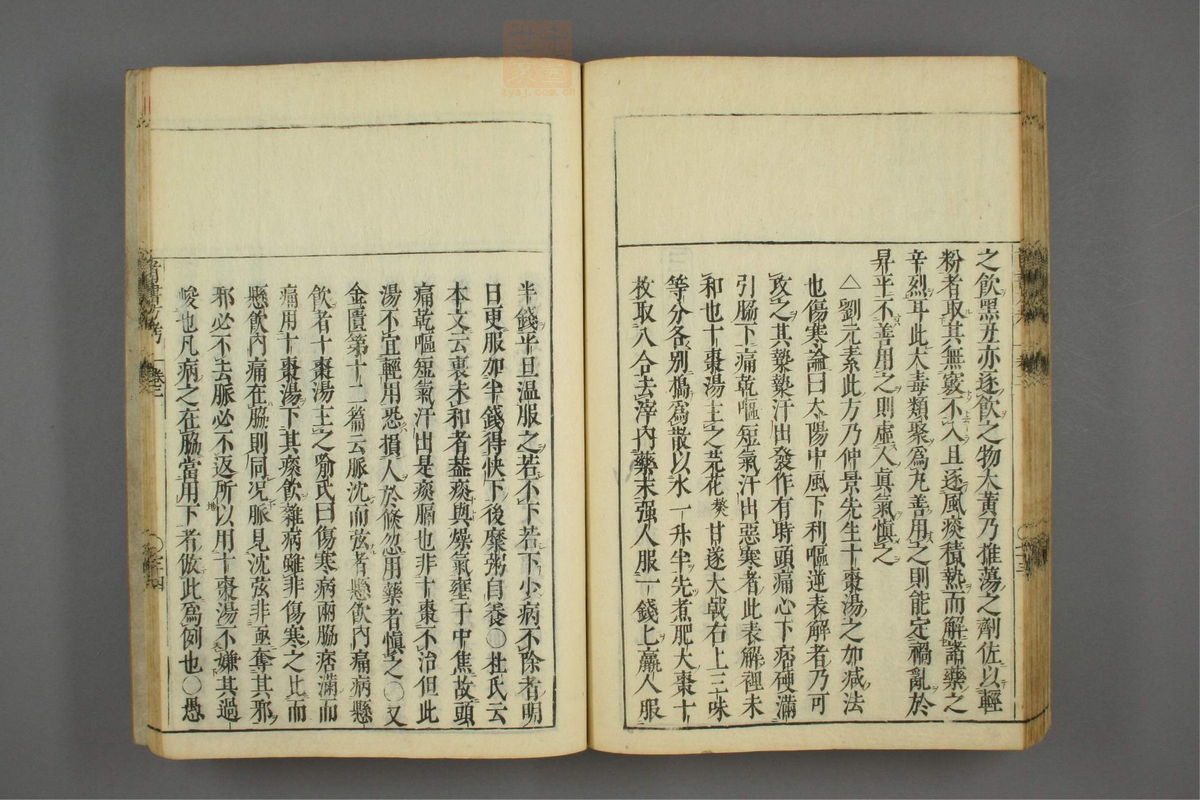 之飲黑丑亦逐飲之物大黃乃推蕩之劑佐以輕
粉者取其無竅不入且逐風痰積熱而解諸藥之
辛烈耳此大毒類聚爲丸善用之則能定禍亂於
昇平不善用之則虛人眞氣慎之
△劉元素此方乃仲景先生十棗湯之加減法
也傷寒論曰太陽中風下利嘔逆表解者乃可
攻之其漐漐汗出發作有時頭痛心下痞硬滿
引脇下痛乾嘔短氣汗出惡寒者此表解裡未
和也十棗湯主之芫花 甘遂大戟右上三味
等分各別搗爲散以水一升半先煮肥大棗十
枚取八合去滓內藥末强人服一錢匕羸人服
半錢平旦温服之若不下若下少病不除者明
日更服加半錢得快下後糜粥自養〇杜氏云
本文云裏未和者蓋痰與燥氣壅于中焦故頭
痛乾嘔短氣汗出是痰膈也非十棗不治但此
湯不宜輕用恐損人於倏忽用藥者慎之〇又
金匱第十二篇云脈沈而弦者懸飲內痛病懸
飲者十棗湯主之喻氏曰傷寒病兩脇痞滿而
痛用十棗湯下其痰飲雜病雖非傷寒之比而
懸飲內痛在脇則同况脈見沈弦非亟奪其邪
邪必不去脈必不返所以用十棗湯不嫌其過
峻也凡病之在脇當用下者倣此爲例也〇愚
卷三